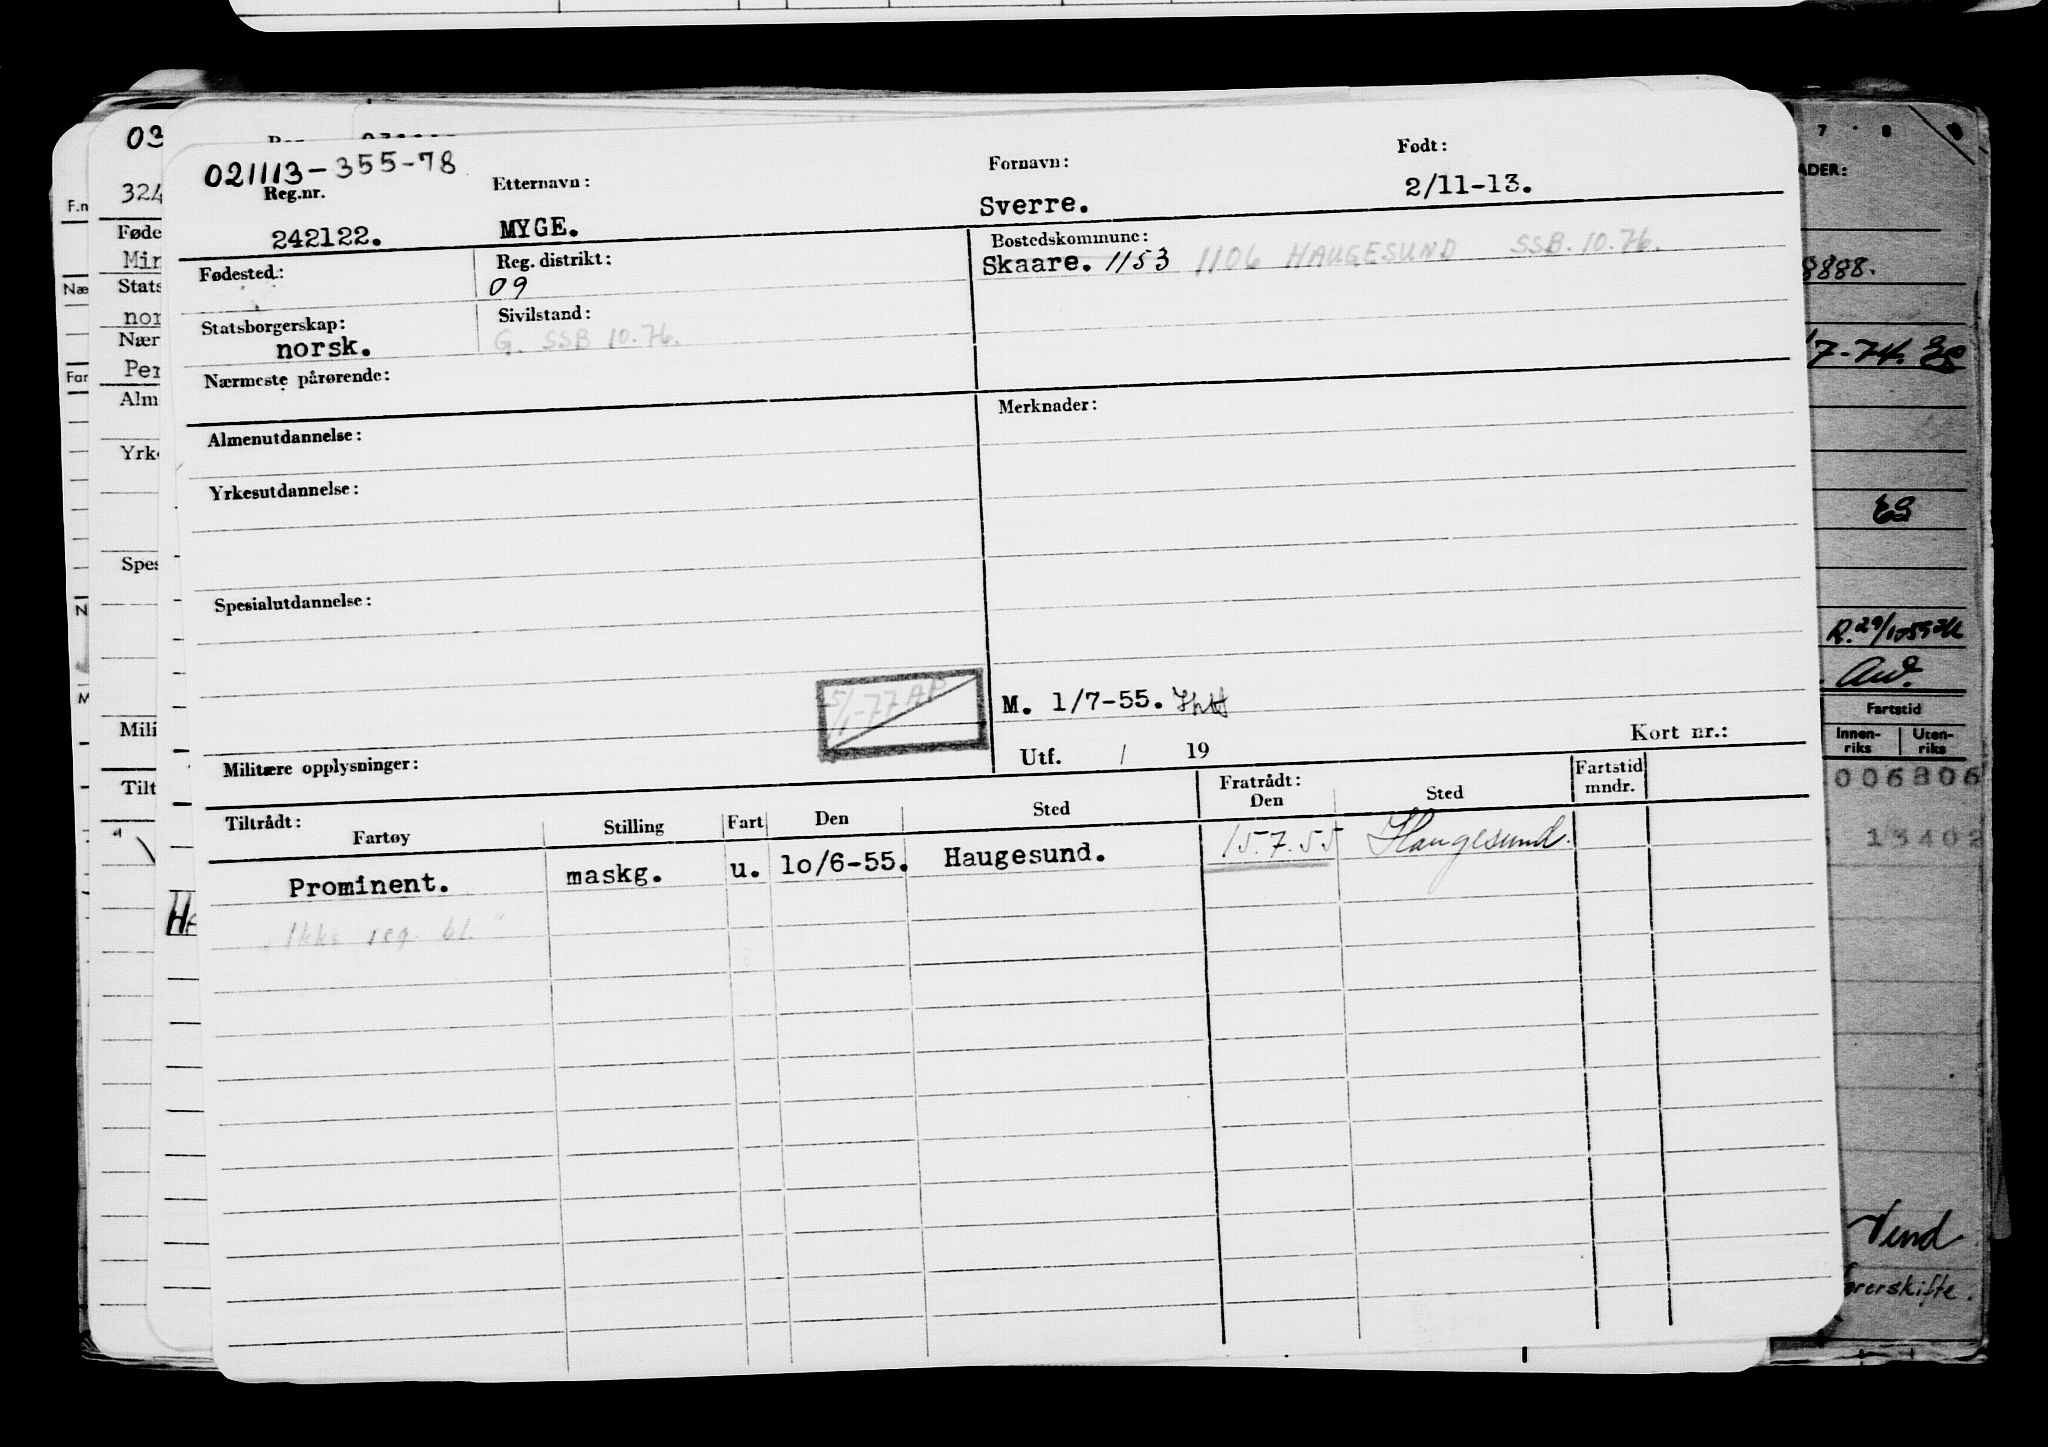 021113-355-78
Reg.nr. Etternavn: Fornavn: Født:
242122. MYGE. Sverre. 2/11-13.
Fødested: Reg. distrikt: Bostedskommune:
09 Skaare. 1153 1106 HAUGESUND SSB. 10.76.
Statsborgerskap: Sivilstand:
norsk. G. SSB 10.76.
Nærmeste pårørende:
Almenutdannelse: Merknader:
Yrkesutdannelse:
Spesialutdannelse:
5/1-77 AP
M. 1/7-55.
Militære opplysninger: Utf. / 19 Kort nr.:
Tiltrådt: Fratrådt: Fartstid
Fartøy Stilling Fart Den Sted Den Sted mndr.
Prominent. maskg. u. 1o/6-55. Haugesund. 15.7.55 Haugesund.
"Ikke reg. bl."
03
324
F.n
Føde
Min
Næ
Stats
nor
Nær
Per
Far
Alm
Yrk
Spes
N
M
Mili
Tilt
HA
7 8
ADER:
8888.
7-74. ES
ES
R. 29/1-59
Fartstid
Innen-riks Uten-riks
006806
13402
rerskifte.